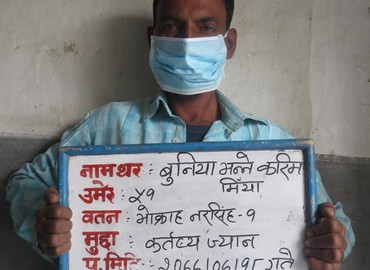 नामथर : बुनिया भन्ने करिम
मिंया
उमेर : ५१
वतन : भोक्राह नरसिंह-१
मुद्दा : कर्तव्य ज्यान
प.मिति : २०६६।०६।१८ गते